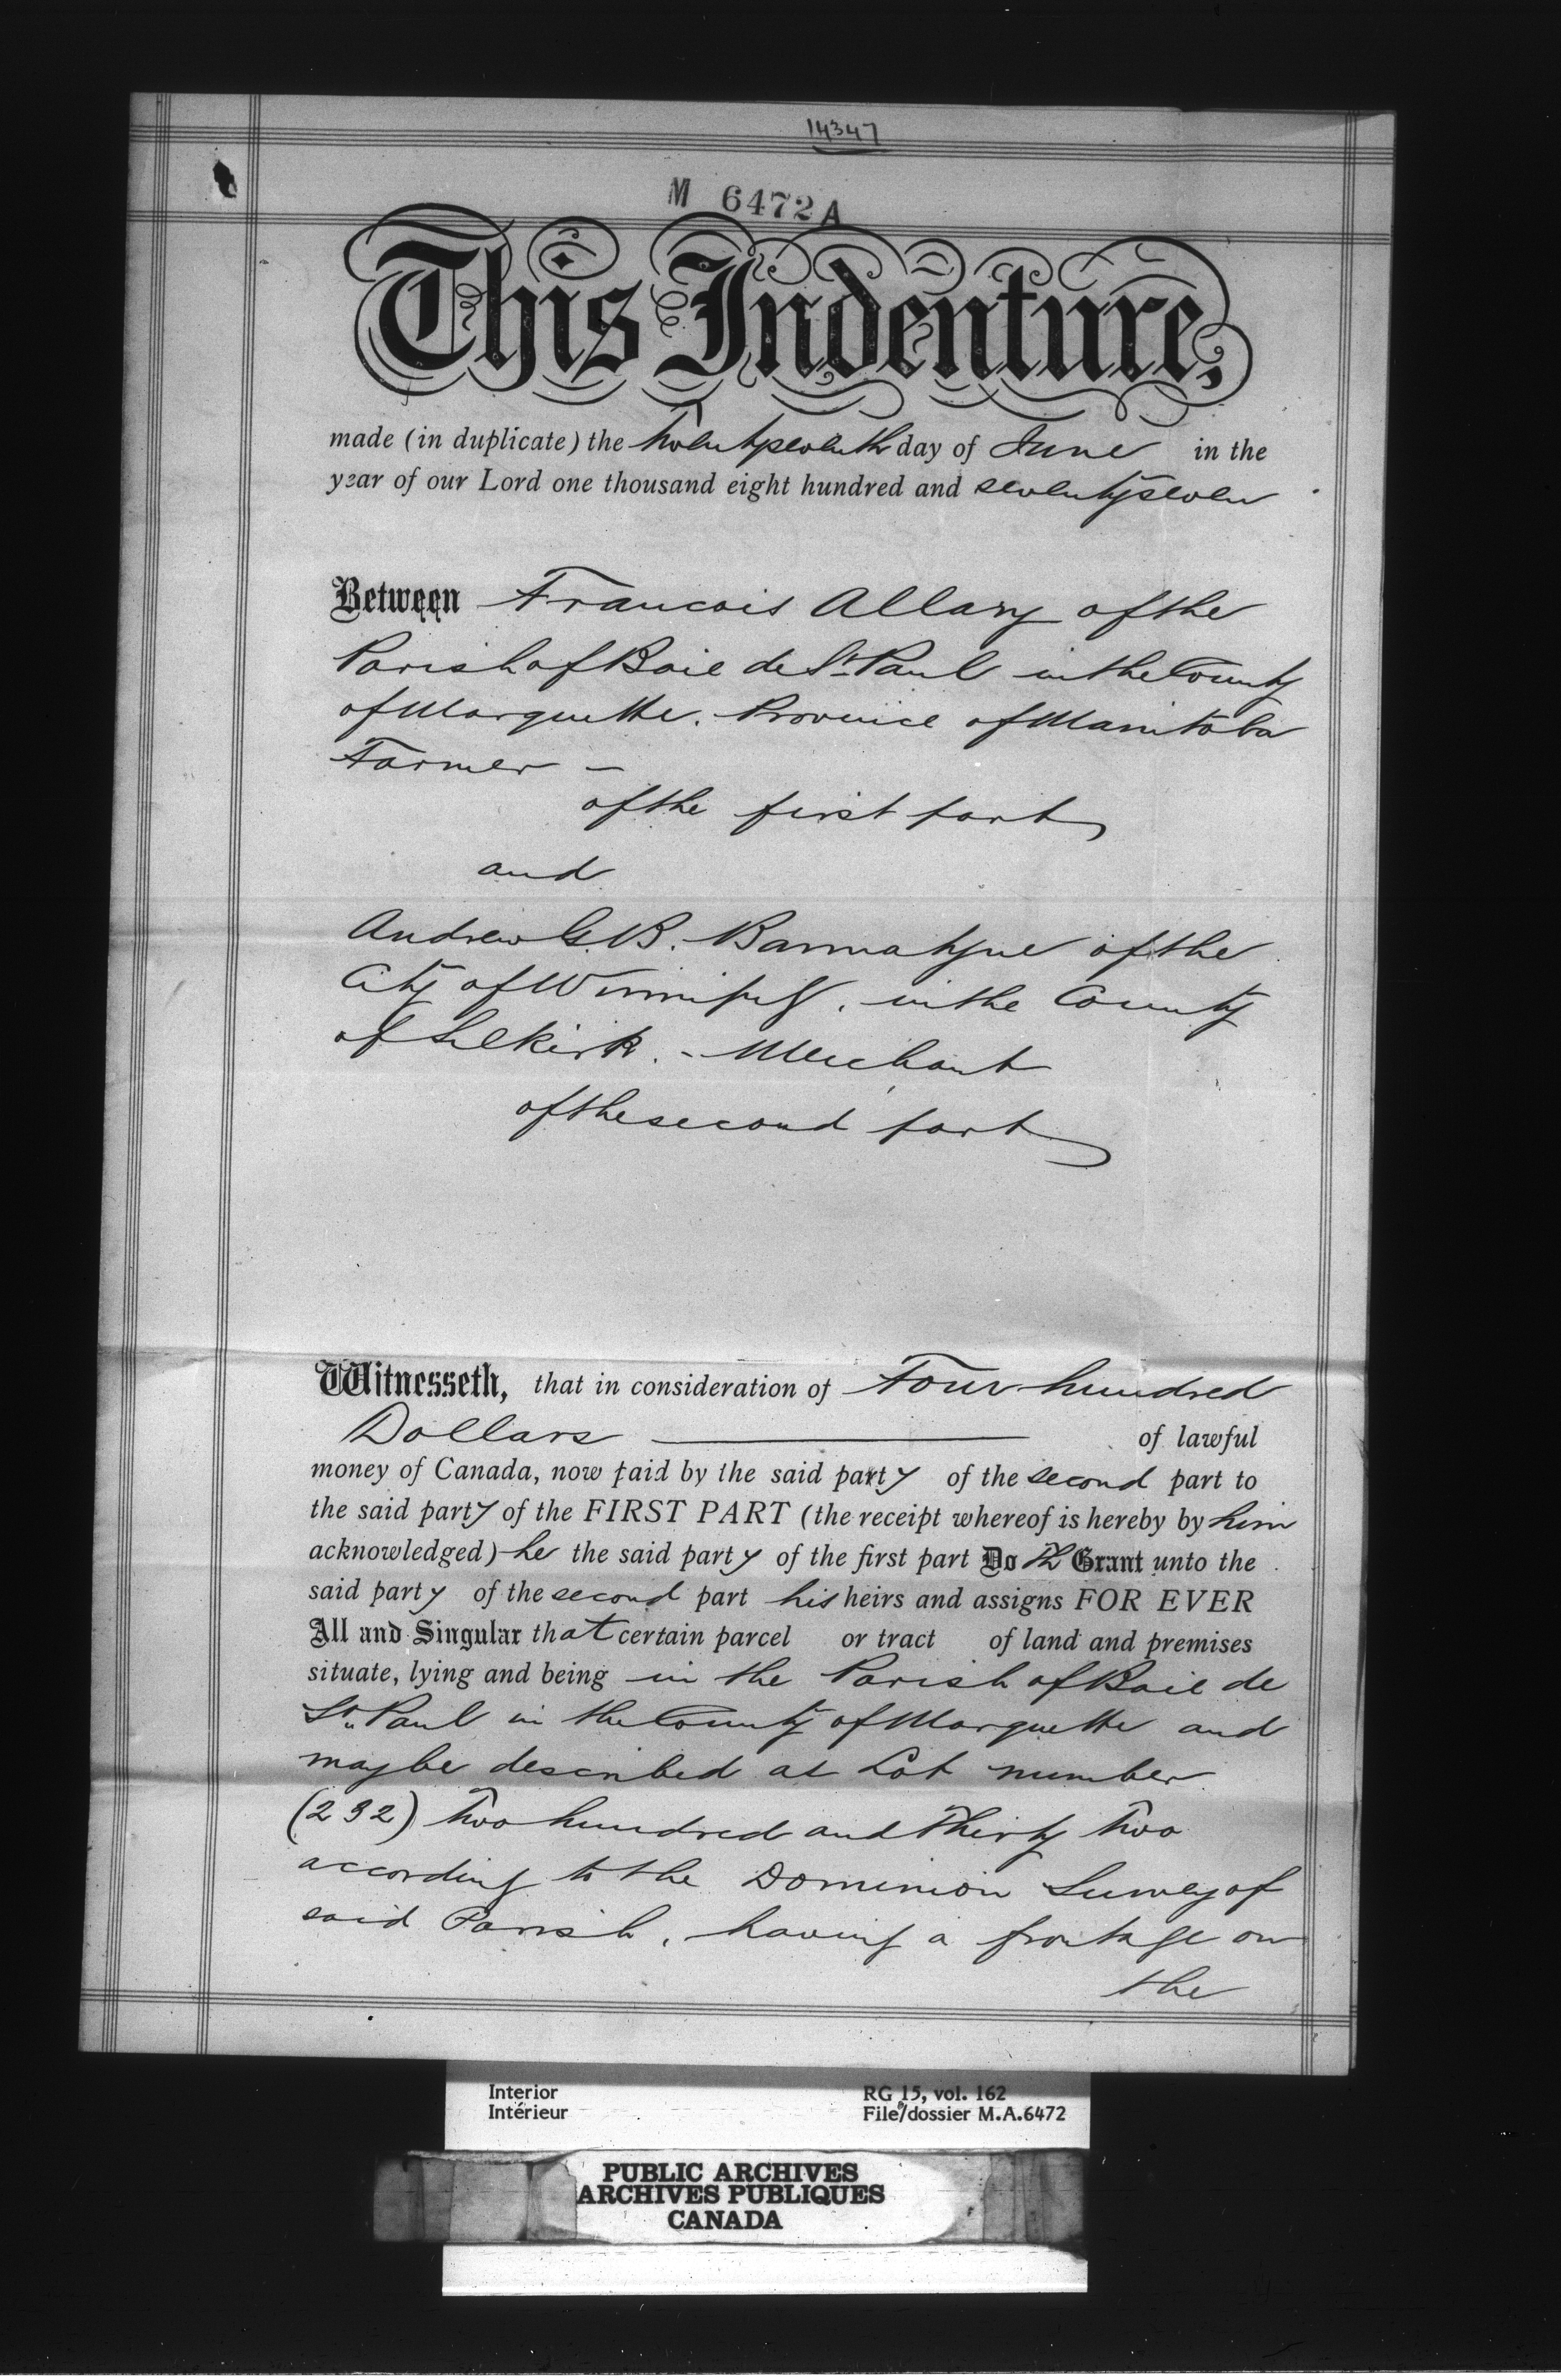 14347
M 6472 A
This Indenture,
made (in duplicate) the Twenty seventh day of June in the
year of our Lord one thousand eight hundred and seventy seven
Between Francois Allary of the
Parish of Baie de St. Paul in the County
of Marquette. Province of Manitoba
Farmer –
of the first part
and
Andrew G. B. Bannatyne of the
City of Winnipeg. in the County
of Selkirk. - Merchant
of the second part
Witnesseth, that in consideration of Four hundred
Dollars of lawful
money of Canada, now paid by the said party of the second part to
the said party of the FIRST PART (the receipt whereof is hereby by him
acknowledged) he the said party of the first part Doth Grant unto the
said party of the second part his heirs and assigns FOR EVER
All and Singular that certain parcel or tract of land and premises
situate, lying and being in the Parish of Baie de
St. Paul in the County of Marquette and
may be described as Lot number
(232) Two hundred and Thirty Two
according to the Dominion Survey of
said Parish, having a frontage on
the
Interior
Intérieur
RG 15, vol. 162
File/dossier M.A.6472
PUBLIC ARCHIVES
ARCHIVES PUBLIQUES
CANADA